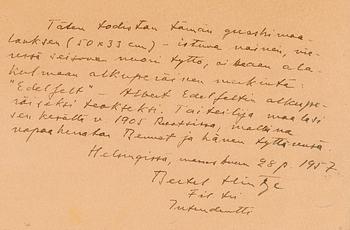 Täten todistan tämän guashimaa-
lauksen (50 x 33 cm) – istuva nainen, vie-
ressä seisova nuori tyttö, oikeaan ala-
kulmaan alkuperäinen merkintä:
"Edelfelt" – Albert Edelfeltin alkupe-
räiseksi teokseksi. Taiteilija maalasi
sen kesällä v 1905 Ruotsissa, mallina
vapaaherratar Bennet ja hänen tyttärensä
Helsingissä, marraskuun 28 p. 1957.
Bertel Hintze
Fil. tri.
Intendentti